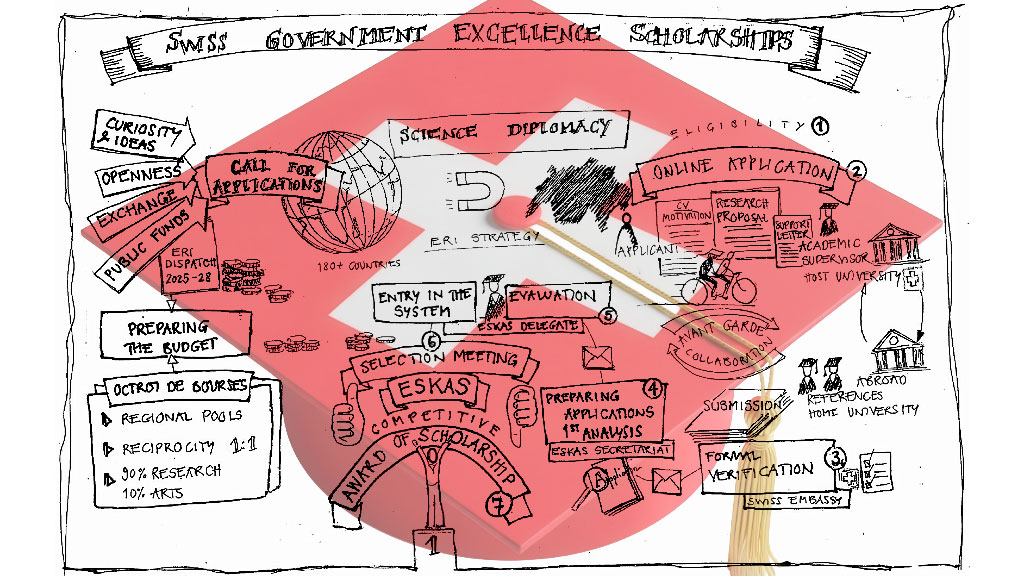 SWISS GOVERNMENT EXCELLENCE SCHOLARSHIPS
CURIOSITY
& IDEAS
OPENNESS
EXCHANGE
PUBLIC FUNDS
CALL FOR
APPLICATIONS
SCIENCE DIPLOMACY
ERI STRATEGY
180+ COUNTRIES
ERI
DISPATCH
2025-28
PREPARING
THE BUDGET
OCTROI DE BOURSES
REGIONAL POOLS
RECIPROCITY 1:1
90% RESEARCH
10% ARTS
ELIGIBILITY 1
ONLINE APPLICATION 2
CV
MOTIVATION
RESEARCH
PROPOSAL
SUPPORT
LETTER
APPLICANT
ACADEMIC
SUPERVISOR
HOST UNIVERSITY
AVANT GARDE
COLLABORATION
ABROAD
REFERENCES
HOME UNIVERSITY
SUBMISSION
FORMAL
VERIFICATION
3
SWISS EMBASSY
4
PREPARING
APPLICATIONS
1ST ANALYSIS
ESKAS SECRETARIAT
Application
ENTRY IN THE
SYSTEM
EVALUATION
ESKAS DELEGATE
5
6
SELECTION MEETING
ESKAS
COMPETITIVE
AWARD OF SCHOLARSHIP
7
1